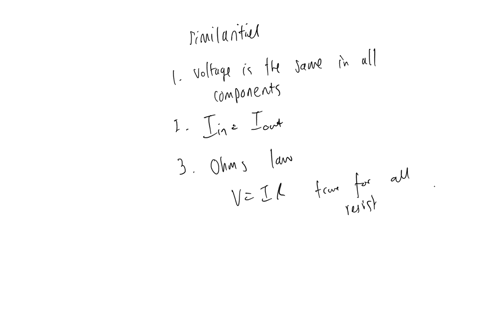 similarities
1. Voltage is the same in all
components
2. Iin = Iout
3. Ohms law
V = IR true for all
resist